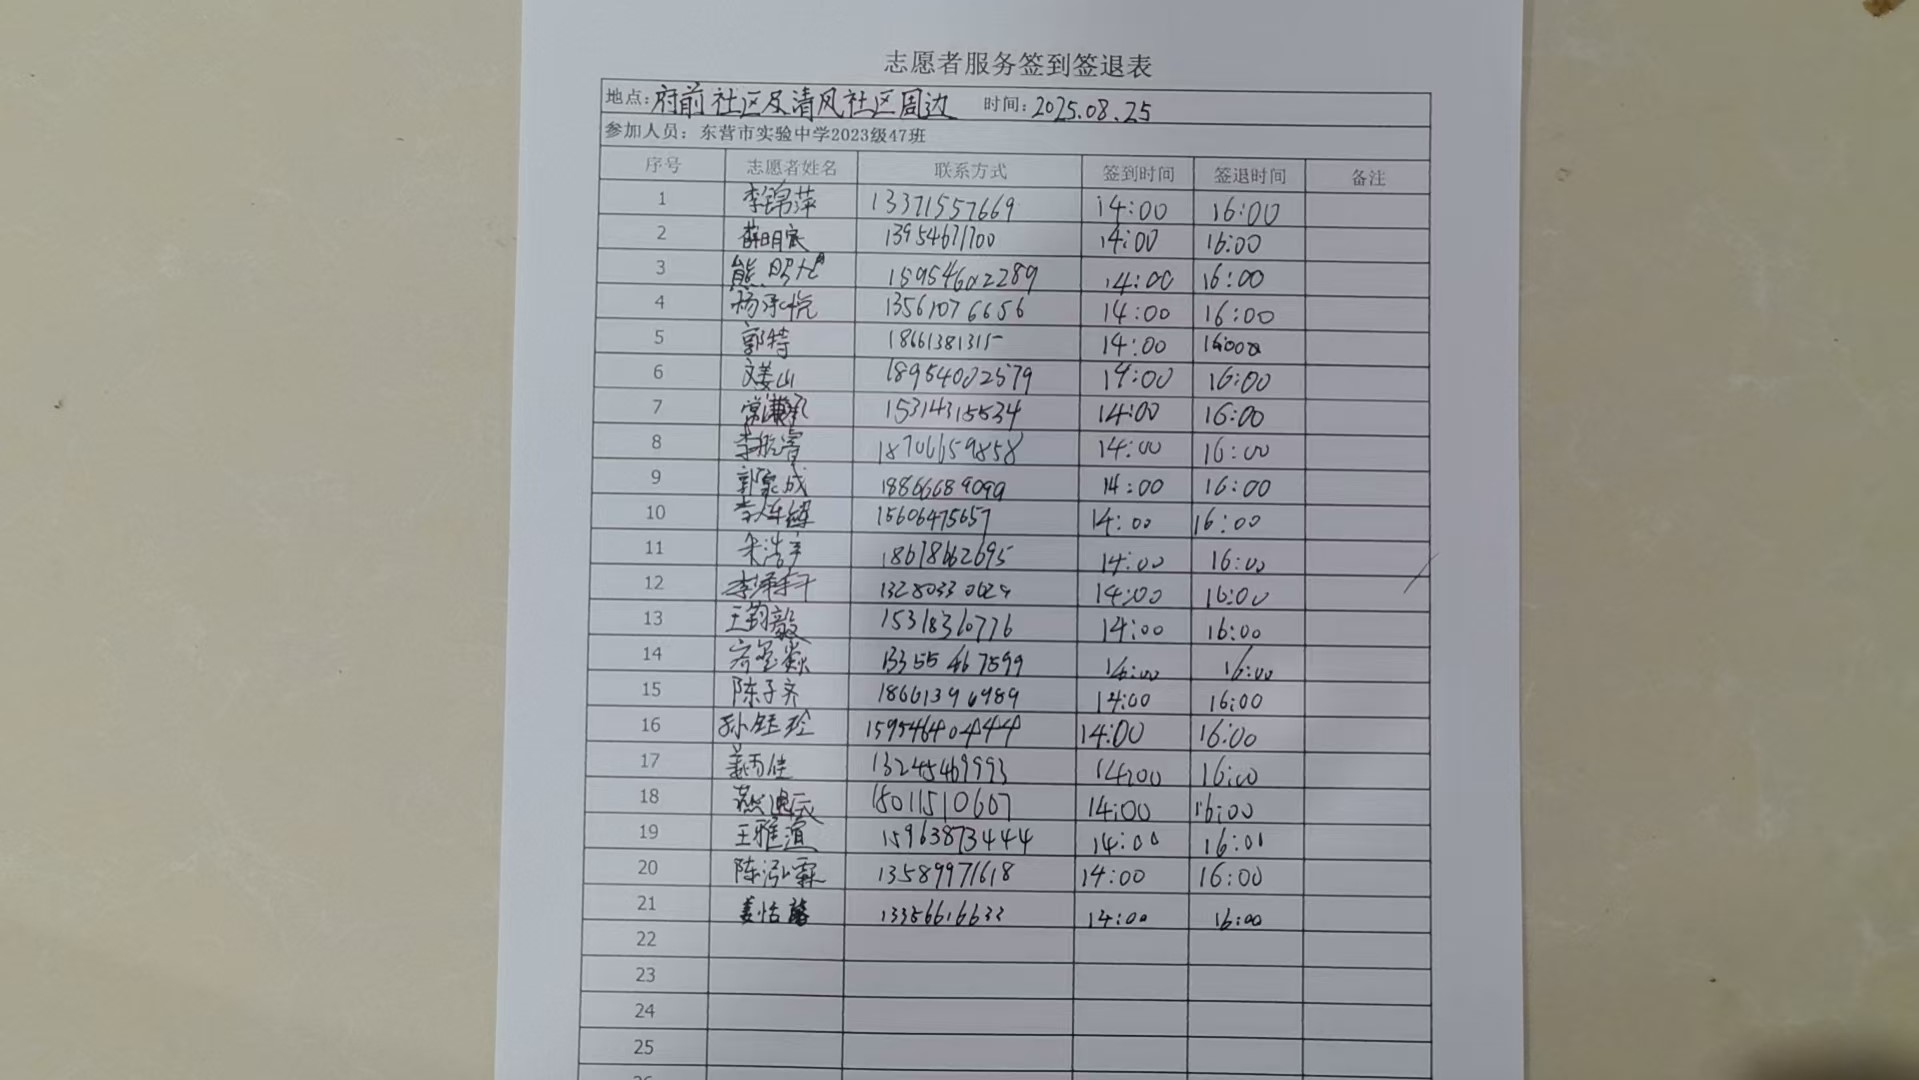 志愿者服务签到签退表
地点: 府前社区及清风社区周边 时间: 2025.08.25
参加人员: 东营市实验中学2023级47班
序号 志愿者姓名 联系方式 签到时间 签退时间 备注
1 李锦萍 13371557669 14:00 16:00
2 薛明宸 13954671700 14:00 16:00
3 熊 15954602289 14:00 16:00
4 杨承悦 13561076656 14:00 16:00
5 郭特 18661381315 14:00
6 文姜山 18954002579 14:00 16:00
7 常 15314315534 14:00 16:00
8 李航睿 18706659858 14:00 16:00
9 郭家成 18866689099 14:00 16:00
10 15606475657 14:00 16:00
11 朱浩宇 18678662695 14:00 16:00
12 李 13280330629 14:00 16:00
13 王钧毅 15318360776 14:00 16:00
14 13355467599 16:00 16:00
15 陈子齐 18661396989 14:00 16:00
16 孙钰玲 15954640444 14:00 16:00
17 姜雨佳 13245469993 14:00 16:00
18 燕迪辰 18011510607 14:00 16:00
19 王雅萱 15963873444 14:00 16:00
20 陈泓霖 13589971618 14:00 16:00
21 姜恬馨 13356616633 14:00 16:00
22
23
24
25